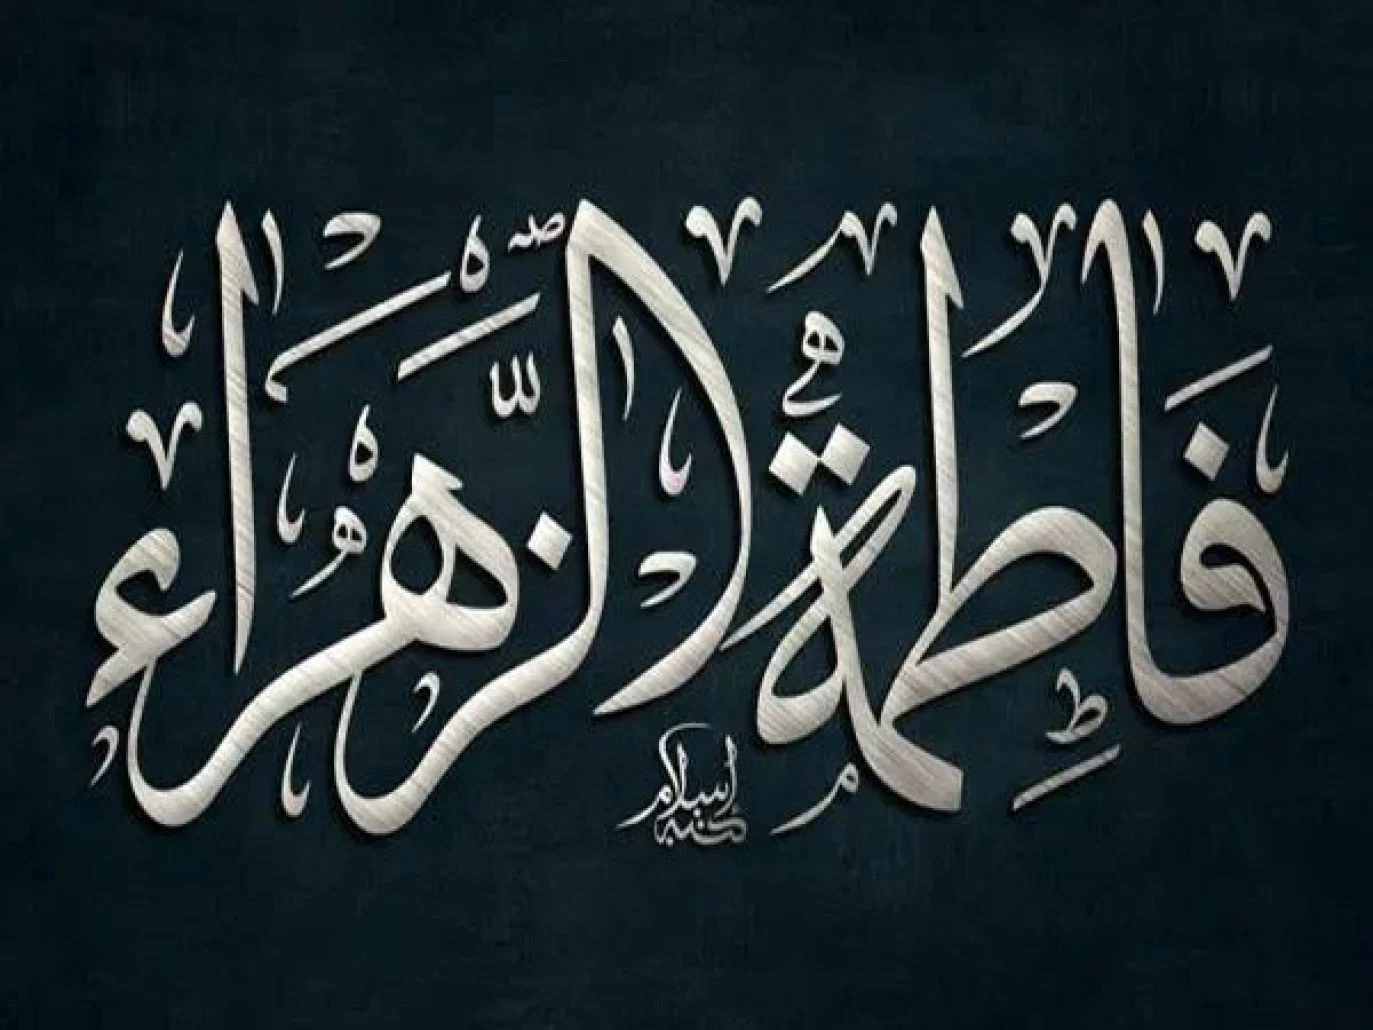 فَاطِمَة الزَّهَرَاء
كتبه إسلام